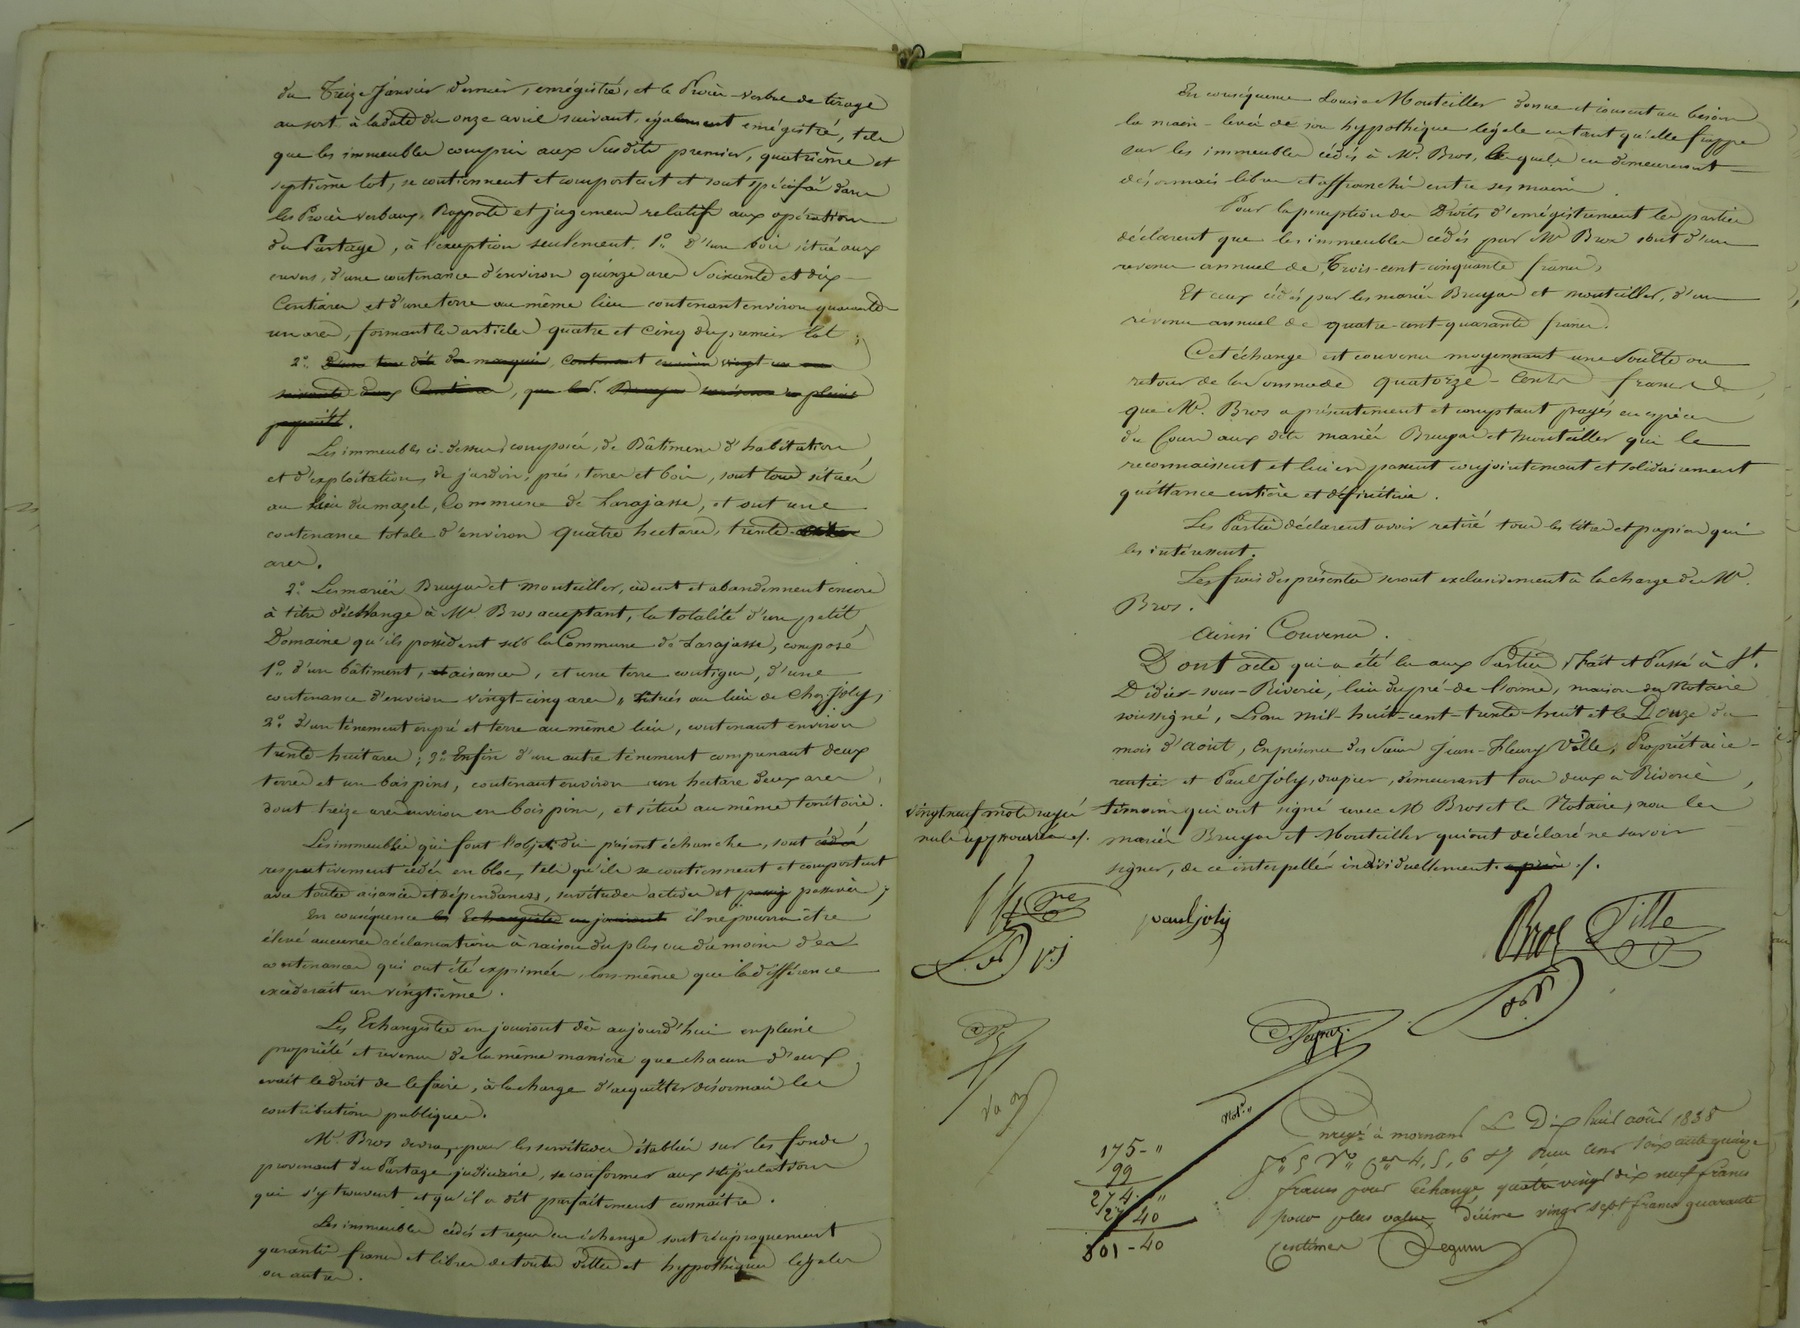 du Treize Janvier dernier, enrégistré, et le Procès-verbal de tirage
au sort à la date du onze avril suivant, également enrégistré, tels
que les immeubles compris aux susdits premier, quatrième et
septième lot, se contiennent et comportent et sont spécifiés dans
les Procès verbaux, Rapports et jugemens relatifs aux opérations
du Partage, à l'exception seulement, 1o d'un bois situé aux
envers, d'une contenance d'environ quinze ares soixante et dix-
Centiares et d'une terre au même lieu contenant environ quarante
un ares, formant les articles quatre et cinq du premier lot;
2o
Les immeubles ci-dessus composés, de Bâtimens d'habitation
et d'exploitation, de jardin, prés, terres et bois, sont tous situés
au lieu du mazel, Commune de Larajasse, et ont une
contenance totale d'environ quatre hectares, trente
ares.
2o Les mariés Bruyas et Mouteiller, cèdent et abandonnent encore
à titre d'échange à Mr Bros acceptant, la totalité d'un petit
Domaine qu'ils possèdent sur la Commune de Larajasse, composé
1o d'un bâtiment, aisances, et une terre contigue, d'une
contenance d'environ vingt-cinq ares, situés au lieu de Chez Joly,
2o d'un tènement en pré et terre au même lieu, contenant environ
trente-huit ares; 3o Enfin d'un autre tènement comprenant deux
terres et un bois pins, contenant environ un hectare deux ares,
dont treize ares environ en bois pins, et situé au même territoire.
Les immeubles qui font l'objet du présent échange, sont
respectivement cédés en bloc, tels qu'ils se contiennent et comportent
avec toutes aisances et dépendances, servitudes actives et passives;
En conséquence les Echangistes en jouiront il ne pourra être
élevé aucunes réclamations à raison du plus ou du moins des
contenances qui ont été exprimées, lors-même que la différence
excéderait un vingtième.
Les Echangistes en jouiront dès aujourd'hui en pleine
propriété et revenus de la même manière que chacun d'eux
avait le droit de le faire, à la charge d'acquitter désormais les
contributions publiques.
Mr Bros devra, pour les servitudes établies sur les fonds
provenant du Partage judiciaire, se conformer aux stipulations
qui s'y trouvent et qu'il a dit parfaitement connaître.
Les immeubles cédés et reçus en échange sont réciproquement
garantis francs et libres de toutes dettes et hypothèques légales
ou autres.
En conséquence Louise Mouteiller donne et consent au besoin
la main-levée de son hypothèque légale en tant qu'elle frappe
sur les immeubles cédés à Mr. Bros, lesquels en demeureront
désormais libres et affranchis entre ses mains
Pour la perception des Droits d'enrégistrement les parties
déclarent que les immeubles cédés par Mr Bros sont d'un
revenu annuel de Trois-cent-cinquante francs,
Et ceux cédés par les mariés Bruyas et Mouteiller, d'un
revenu annuel de quatre-cent-quarante francs.
Cet échange est convenu moyennant une Soulte ou
retour de la Somme de quatorze-Cents francs
que Mr. Bros a présentement et comptant payés en espèces
du Cours aux dits mariés Bruyas et Mouteiller qui le
reconnaissent et lui en passent conjointement et solidairement
quittance entière et définitive.
Les Parties déclarent avoir retiré tous les titres et papiers qui
les intéressent.
Les frais des présentes seront exclusivement à la charge de Mr.
Bros.
Ainsi Convenu.
Dont acte qui a été lu aux Parties, Fait et Passé à St.
Didier-sous-Riverie, lieu du pré-de-l'orme, maison du Notaire
soussigné, L'an mil-huit-cent-trente-huit et le Douze du
mois d'Août, En présence des Sieurs Jean-Fleury Ville, Propriétaire-
rentier et Paul Joly, drapier, demeurant tous deux à Riverie,
témoins qui ont signé avec Mr Bros et le Notaire, non les
mariés Bruyas et Mouteiller qui ont déclaré ne savoir
signer, de ce interpellés individuellement ./.
vingt neuf mots rayés
nuls approuvés ./.
paul joly
Bros Ville
p.j
Not.
175 - "
99
274. "
27 40
301 - 40
Enregé à mornant Le Dix huit août 1838
fo 5 Vo Cen 4, 5, 6 & 7 Reçu Cent soixante quinze
francs pour Echange quatre vingt dix neuf francs
pour plus value, Décime vingt sept francs quarante
Centimes